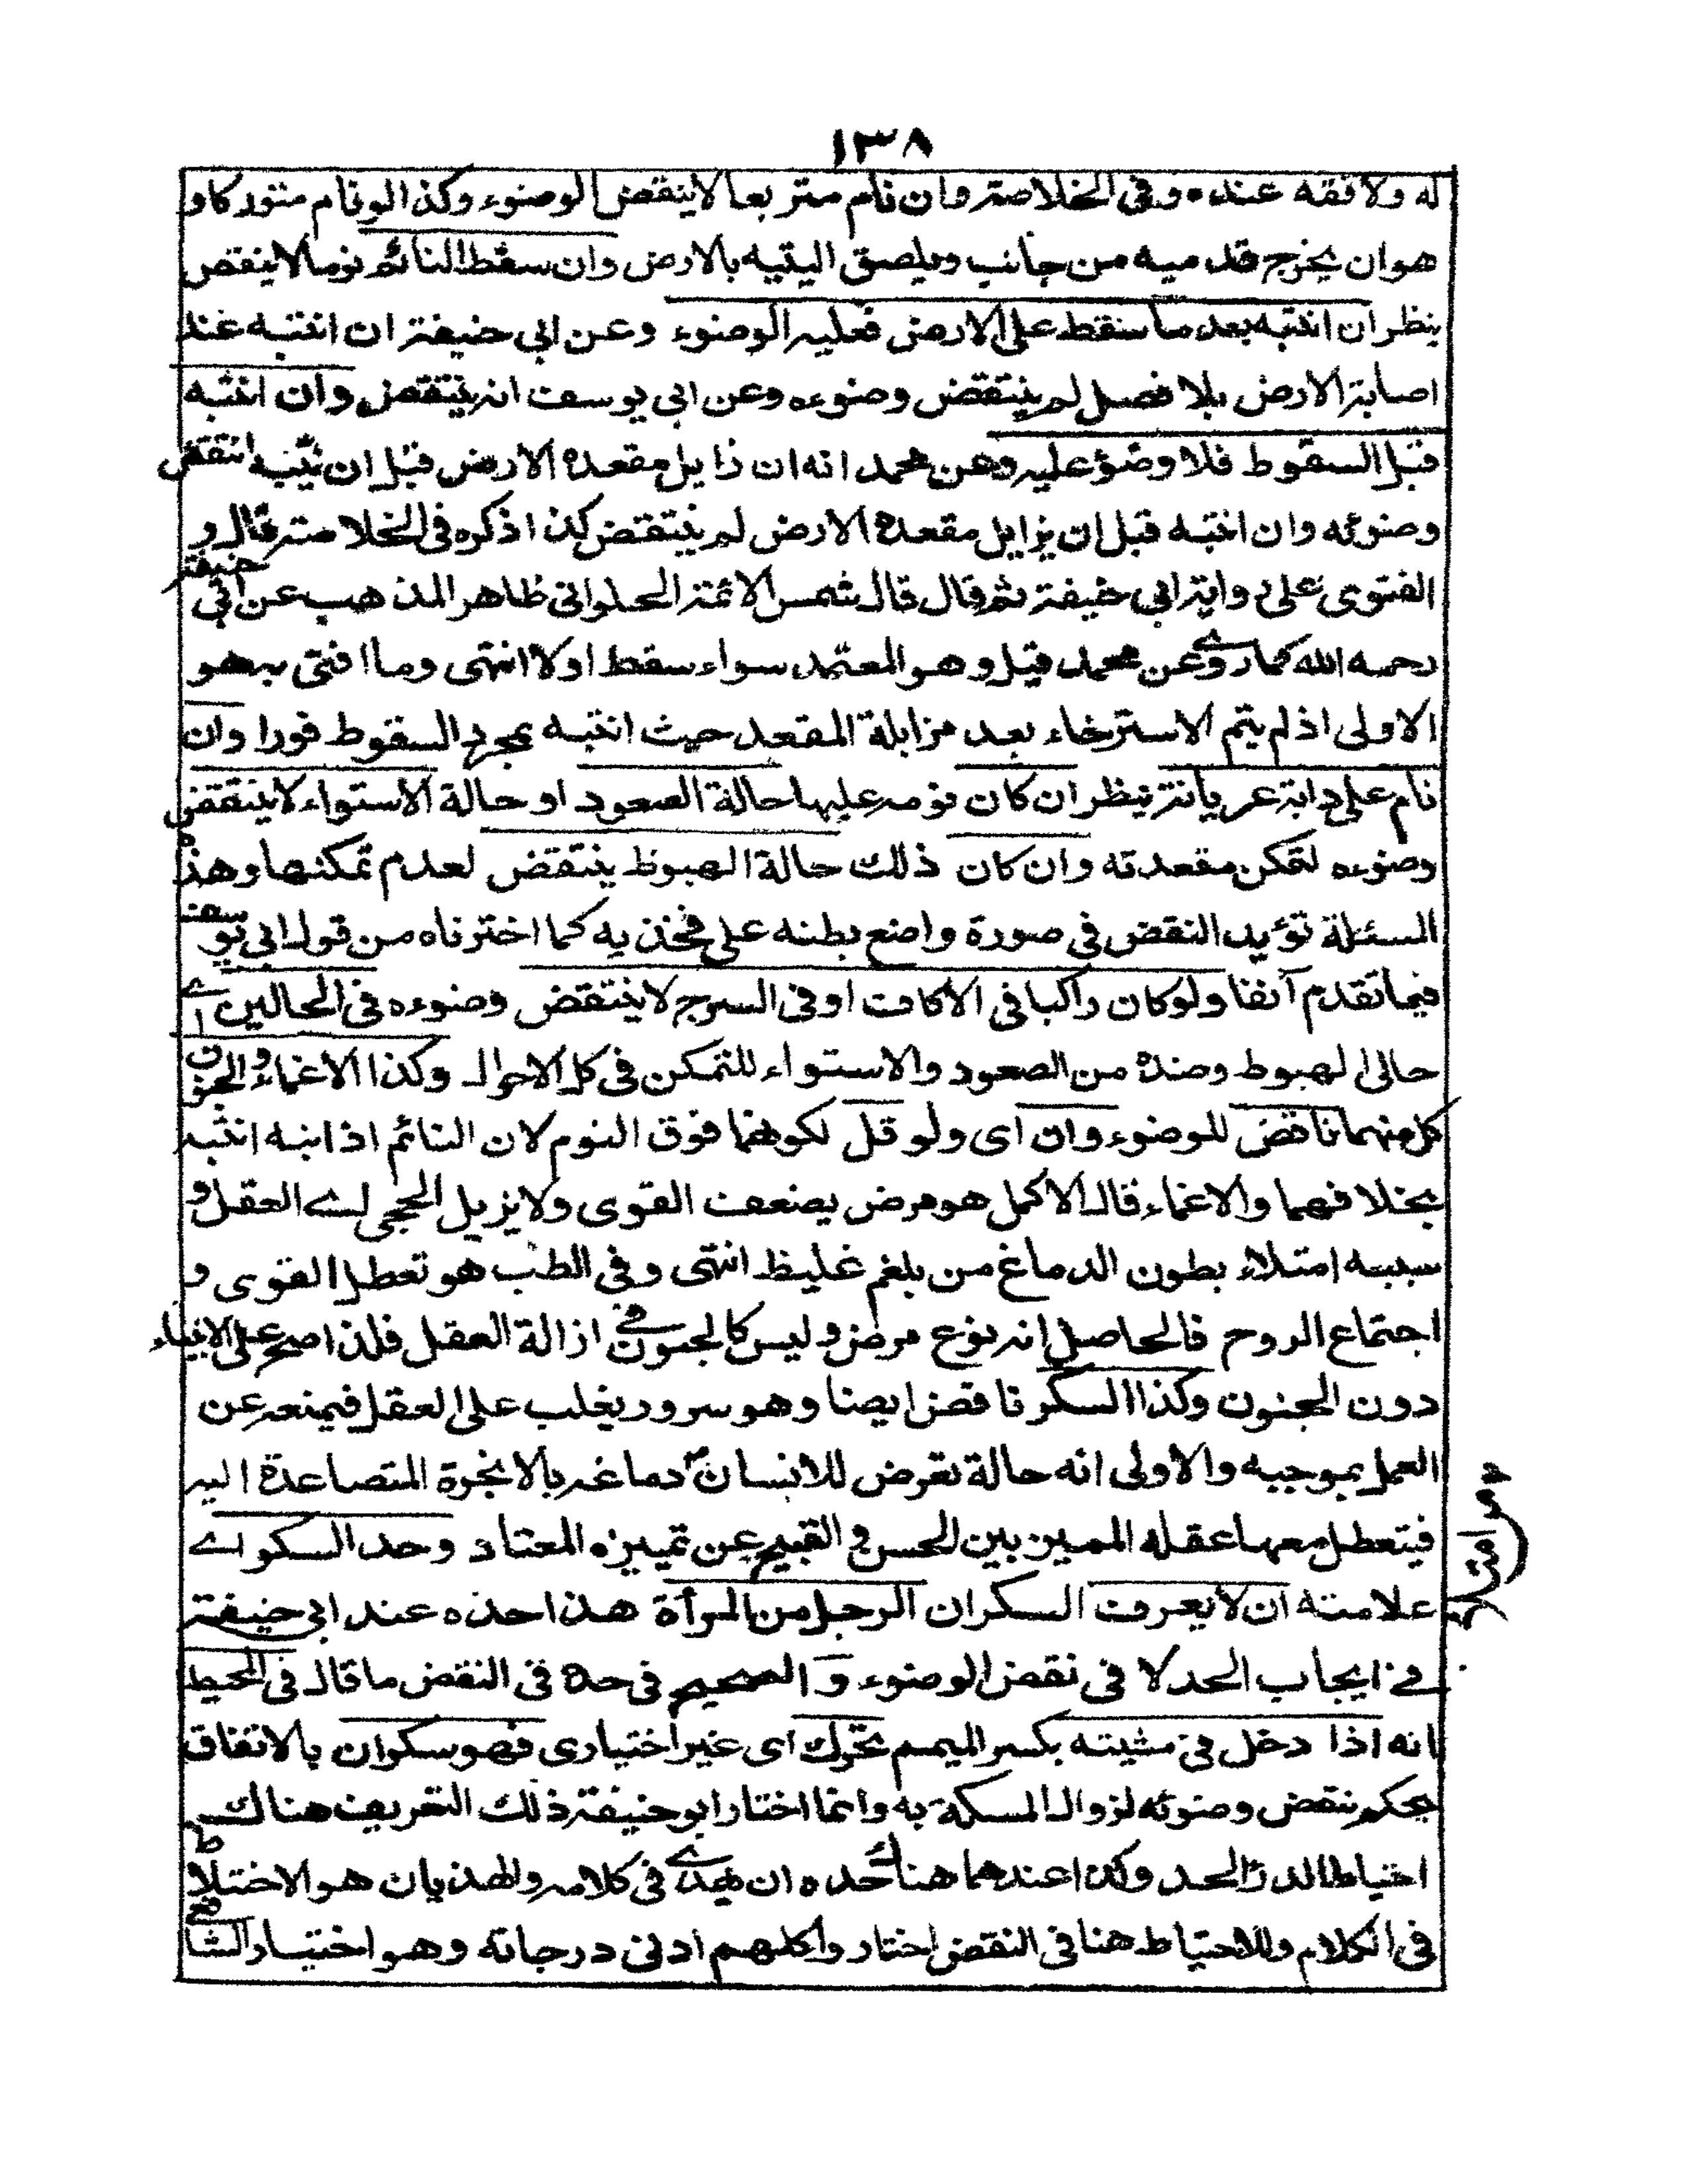 ١٣٨
له ولا فقه عنده وفى الخلاصة وان نام متربعا لا ينقض الوضوء وكذا لو نام متوركا و
هو ان يخرج قدميه من جانب ويلصق اليتيه بالارض وان سقط النائم نوما لا ينقض
ينظر ان انتبه بعد ما سقط على الارض فعليه الوضوء وعن ابي حنيفة ان انتبه عند
اصابة الارض بلا فصل لم ينتقض وضوءه وعن ابى يوسف انه ينتقض وان انتبه
قبل السقوط فلا وضؤ عليه وعن محمد انه ان زايل مقعده الارض قبل ان ينتبه انتقض
وضوئه وان انتبه قبل ان يزايل مقعدة الارض لم ينتقض كذا ذكره فى الخلاصة قال و
الفتوى على رواية ابي حنيفة ثم قال قال شمس الائمة الحلوانى ظاهر المذهب عن ابى حنيفة
رحمه الله كما روى عن محمد قيل وهو المعتمد سواء سقط او لا انتهى وما افتى به هو
الاولى اذ لم يتم الاسترخاء بعد مزايلة المقعد حيث انتبه بمجرد السقوط فورا وان
نام على دابة عريانة ينظر ان كان نومه عليها حالة الصعود او حالة الاستواء لا ينتقض
وضوءه لتمكن مقعدته وان كان ذلك حالة الهبوط ينتقض لعدم تمكنها وهذه
السئلة تؤيد النقض فى صورة واضع بطنه على فخذيه كما اخترناه من قول ابى يوسف
فيما تقدم آنفا ولو كان راكبا فى الأكاف او فى السرج لا ينتقض وضوءه فى الحالين اے
حالى الهبوط وضده من الصعود والاستواء للتمكن فى كل الاحوال وكذا الاغماء والجنون
كل منهما ناقض للوضوء وان اى ولو قل لكونهما فوق النوم لان النائم اذا نبه انتبه
بخلافهما والاغماء قال الاكمل هو مرض يضعف القوى ولا يزيل الحجى اے العقل و
سببه امتلاء بطون الدماغ من بلغم غليظ انتهى وفى الطب هو تعطل القوى و
اجتماع الروح فالحاصل انه نوع مرض وليس كالجنون فے ازالة العقل فلذا صح على الانبياء
دون الجنون وكذا السكر ناقض ايضا وهو سرور يغلب على العقل فيمنعه عن
العمل بموجبه والاولى انه حالة تعرض للانسان دماغه بالابخرة المتصاعدة اليه
فيتعطل معها عقله المميز بين الحسن و القبيح عن تميزه المعتاد وحد السكر اے
علامته ان لا يعرف السكران الرجل من المرأة هذا حده عند ابى حنيفة
فے ايجاب الحد لا فى نقض الوضوء و الصحيح فى حده فى النقض ما قال فى المحيط
انه اذا دخل فى مشيته بكسر الميم تحرك اى غير اختيارى فهو سكران بالاتفاق
يحكم بنقض وضوئه لزوال المسكة به وانما اختار ابو حنيفة ذلك التعريف هناك
احتياطا لدرئ الحد وكذا عندهما هناك حده ان يهذے فى كلامه والهذيان هو الاختلاط
فى الكلام وللاحتياط هنا فى النقض اختار واكلهم ادنى درجاته وهو اختيار المشايخ